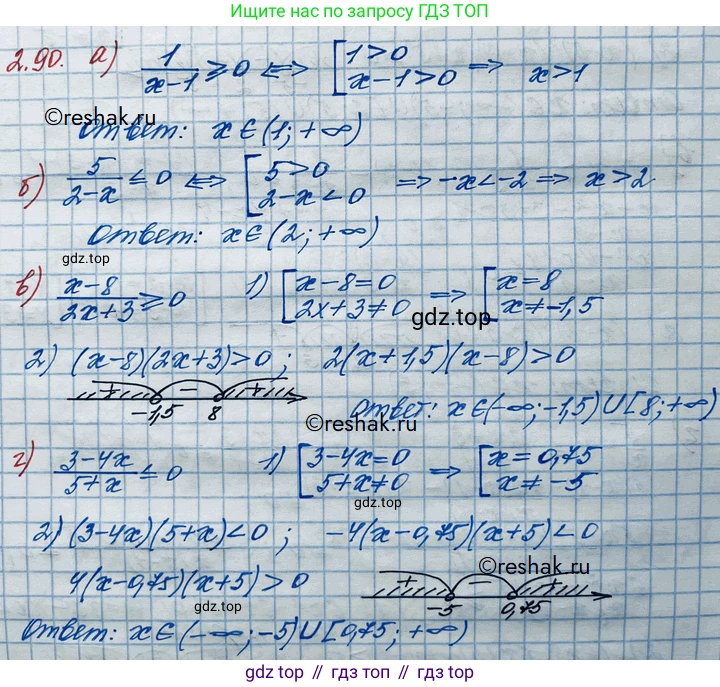 Ищите нас по запросу ГДЗ ТОП
2.90. а) 1/(x-1) ≥ 0 ⟺ [1>0 x-1>0 ⟹ x>1
©reshak.ru
Ответ: x∈(1;+∞)
б) 5/(2-x) ≤ 0 ⟺ [5>0 2-x<0 ⟹ -x<-2 ⟹ x>2
Ответ: x∈(2;+∞)
gdz.top
в) (x-8)/(2x+3) ≥ 0 1) [x-8=0 2x+3≠0 ⟹ [x=8 x≠-1,5
gdz.top
2) (x-8)(2x+3)>0; 2(x+1,5)(x-8)>0
+ - +
-1,5 8
Ответ: x∈(-∞;-1,5)∪[8;+∞)
©reshak.ru
г) (3-4x)/(5+x) ≤ 0 1) [3-4x=0 5+x≠0 ⟹ [x=0,75 x≠-5
gdz.top
2) (3-4x)(5+x)<0; -4(x-0,75)(x+5)<0
©reshak.ru
4(x-0,75)(x+5)>0
+ - +
-5 0,75
gdz.top
Ответ: x∈(-∞;-5)∪[0,75;+∞)
gdz.top // гдз топ // gdz.top